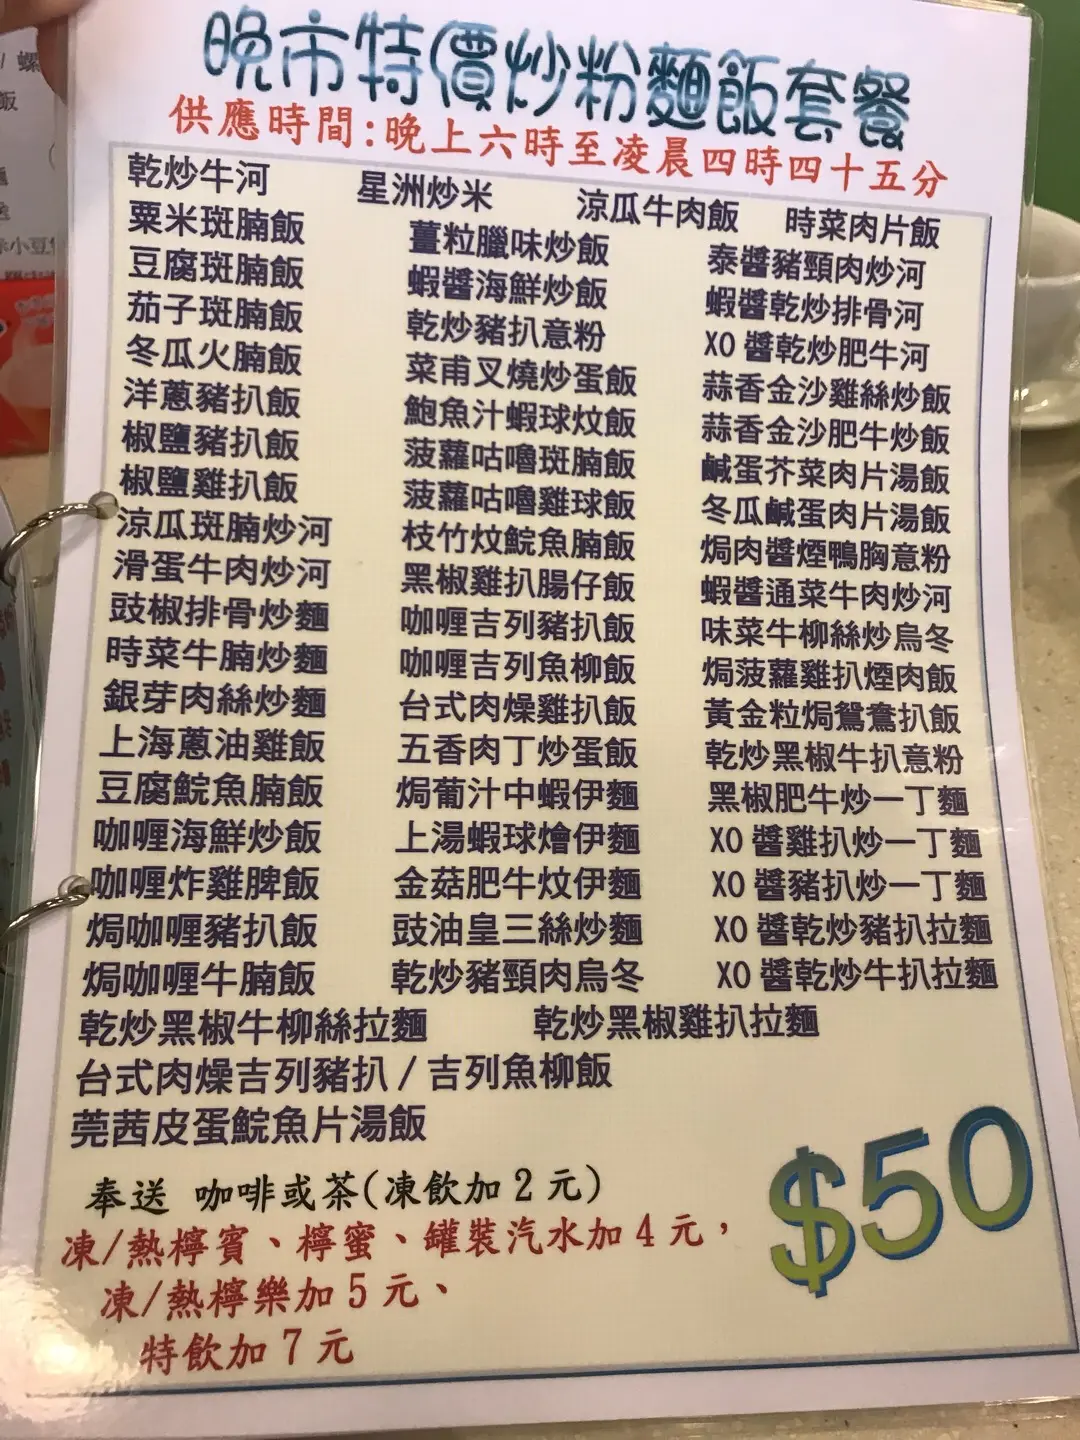 晚市特價炒粉麵飯套餐
供應時間:晚上六時至凌晨四時四十五分
乾炒牛河 星洲炒米 涼瓜牛肉飯 時菜肉片飯
粟米斑腩飯 薑粒臘味炒飯 泰醬豬頸肉炒河
豆腐斑腩飯 蝦醬海鮮炒飯 蝦醬乾炒排骨河
茄子斑腩飯 乾炒豬扒意粉 XO 醬乾炒肥牛河
冬瓜火腩飯 菜甫叉燒炒蛋飯 蒜香金沙雞絲炒飯
洋蔥豬扒飯 鮑魚汁蝦球炆飯 蒜香金沙肥牛炒飯
椒鹽豬扒飯 菠蘿咕嚕斑腩飯 鹹蛋芥菜肉片湯飯
椒鹽雞扒飯 菠蘿咕嚕雞球飯 冬瓜鹹蛋肉片湯飯
涼瓜斑腩炒河 枝竹炆鯇魚腩飯 焗肉醬煙鴨胸意粉
滑蛋牛肉炒河 黑椒雞扒腸仔飯 蝦醬通菜牛肉炒河
豉椒排骨炒麵 咖喱吉列豬扒飯 味菜牛柳絲炒烏冬
時菜牛腩炒麵 咖喱吉列魚柳飯 焗菠蘿雞扒煙肉飯
銀芽肉絲炒麵 台式肉燥雞扒飯 黃金粒焗鴛鴦扒飯
上海蔥油雞飯 五香肉丁炒蛋飯 乾炒黑椒牛扒意粉
豆腐鯇魚腩飯 焗葡汁中蝦伊麵 黑椒肥牛炒一丁麵
咖喱海鮮炒飯 上湯蝦球燴伊麵 XO 醬雞扒炒一丁麵
咖喱炸雞脾飯 金菇肥牛炆伊麵 XO 醬豬扒炒一丁麵
焗咖喱豬扒飯 豉油皇三絲炒麵 XO 醬乾炒豬扒拉麵
焗咖喱牛腩飯 乾炒豬頸肉烏冬 XO 醬乾炒牛扒拉麵
乾炒黑椒牛柳絲拉麵 乾炒黑椒雞扒拉麵
台式肉燥吉列豬扒 / 吉列魚柳飯
莞茜皮蛋鯇魚片湯飯
$50
奉送 咖啡或茶(凍飲加 2 元)
凍/熱檸賓、檸蜜、罐裝汽水加 4 元，
凍/熱檸樂加 5 元、
特飲加 7 元